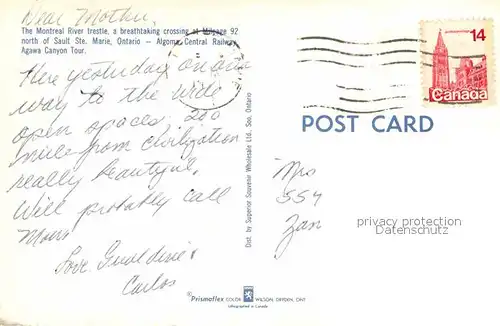 Dear Mother,
The Montreal River trestle, a breathtaking crossing at Mileage 92
north of Sault Ste. Marie, Ontario — Algoma Central Railway
Agawa Canyon Tour.
Here yesterday on our
way to the wide
open spaces. 200
miles from civilization
really beautiful.
Will probably call
Love Gualdine &
Carlos
Dist. by Superior Souvenir Wholesale Ltd. Soo, Ontario
Prismaflex COLOR WILSON, DRYDEN, ONT
Lithographed in Canada
14
Canada
POST CARD
Mrs
554
Zan
privacy protection
Datenschutz